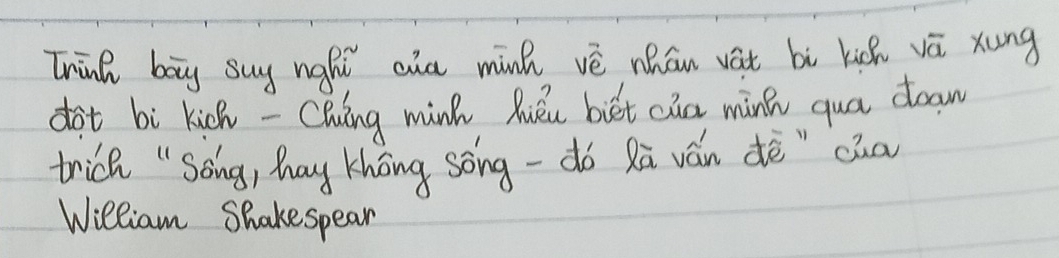 Trình bày suy nghĩ của mình về nhân vật bi kịch và xung
đột bi kịch - Chứng minh hiểu biết của mình qua đoạn
trích "Sống, hay không sống - đó là vấn đề" của
William Shakespear